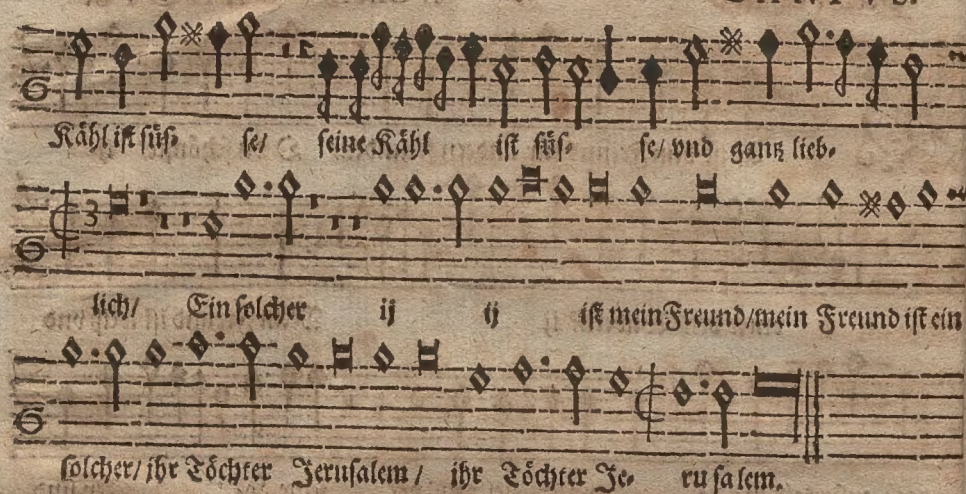 CANTVS.
Kähl ist süs- se/ seine Kähl ist süs- se/ vnd gantz lieb-
3
lich/ Ein solcher ij ij ist mein Freund/mein Freund ist ein
solcher/ jhr Töchter Jerusalem/ jhr Töchter Je- ru salem.